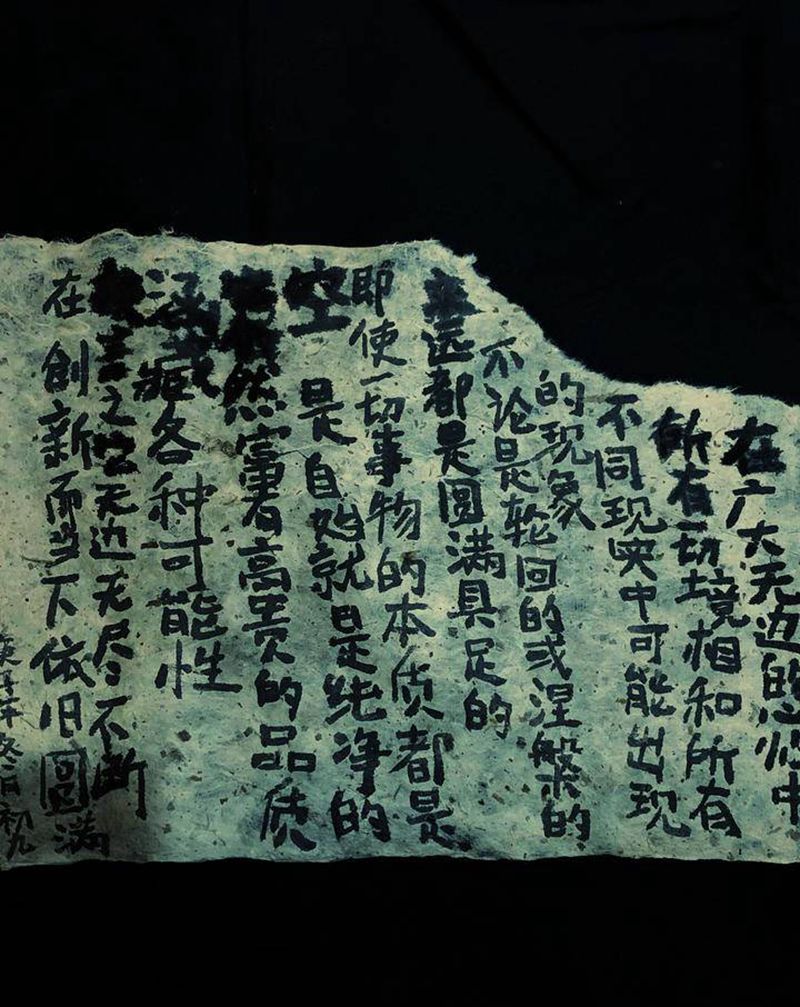 在广大无边的心性中
所有一切境相和所有
不同现实中可能出现
的现象
不论是轮回的或涅槃的
永远都是圆满具足的
即使一切事物的本质都是
空 是自始就是纯净的
然富着高贵的品质
涵藏各种可能性
言之空无边无尽不断
在創新而当下依旧圆满
庚子年冬日初九